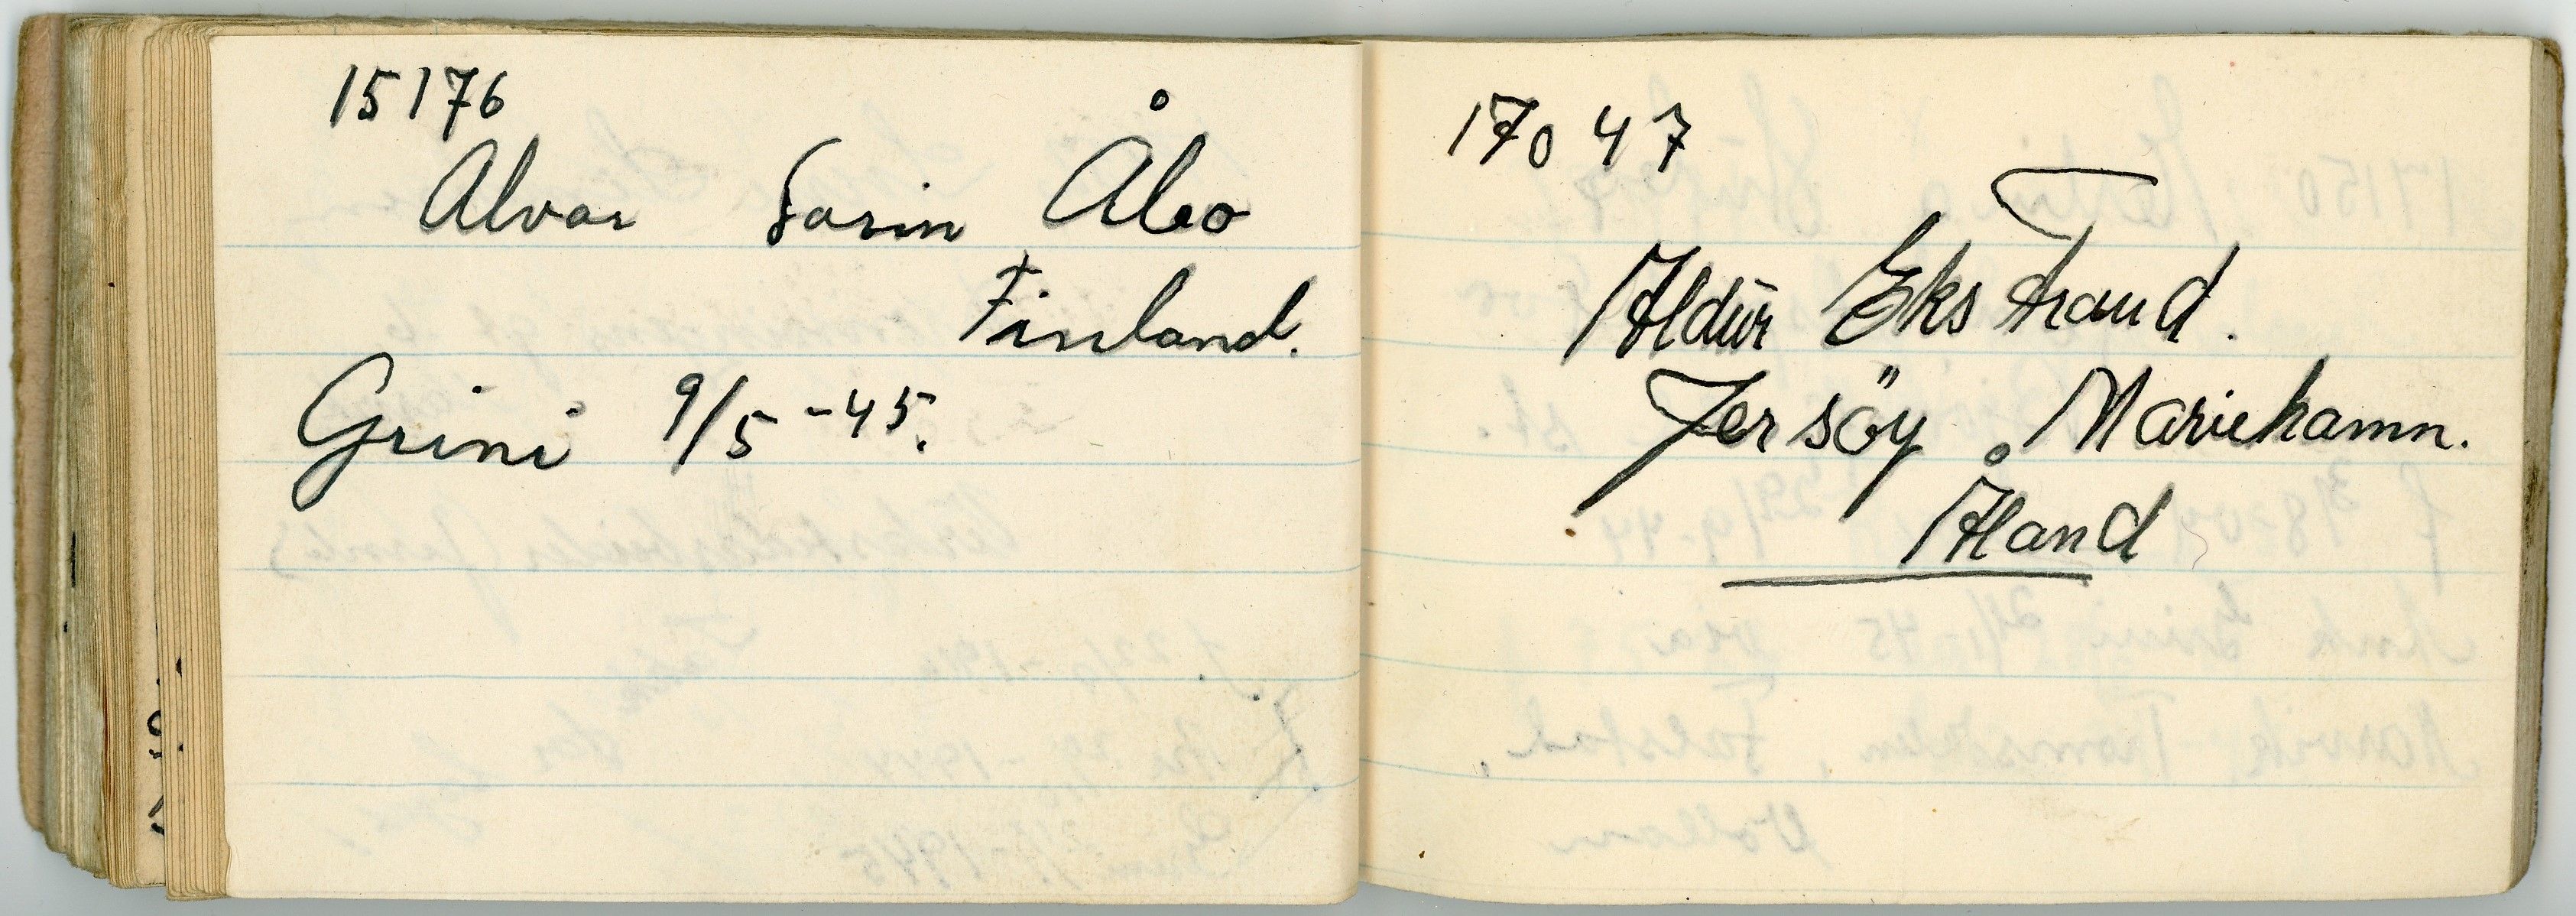 15176
Alvar Sarin Åbo
Finland.
Grini 9/5-45.
17047
Aldur Ekstrand.
Jersöy, Mariehamn.
Åland